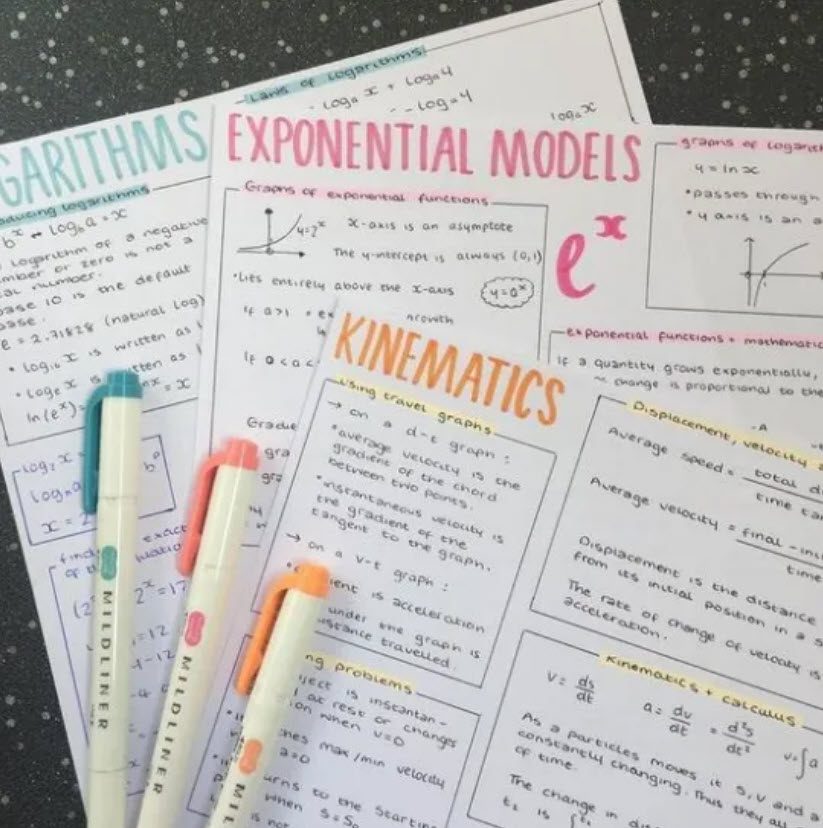 Laws of Logarithms:
logₐx + logₐy
- logₐy
logₐx
GARITHMS
ducing logarithms
bˣ ↔ log_b a = x
logarithm of a negative
mber or zero is not a
number.
ase 10 is the default
base.
e = 2.71828 (natural log)
• log₁₀x is written as
• logₑx is written as
ln(eˣ) = = x
log₂x =
x = 2
2ˣ = 17
EXPONENTIAL MODELS
Graphs of exponential functions
y=2ˣ
x-axis is an asymptote
The y-intercept is always (0,1)
•Lies entirely above the x-axis
y=aˣ
If a>1
growth
If 0<a<
Gradie
gra
eˣ
graphs of logarith
y = ln x
•passes through
• y axis is an a
exponential functions + mathematic
If a quantity grows exponentially,
change is proportional to the
KINEMATICS
Using travel graphs
→ on a d-t graph :
•average velocity is the
gradient of the chord
between two points.
•instantaneous velocity is
the gradient of the
tangent to the graph.
→ on a v-t graph :
ient is acceleration
under the graph is
istance travelled.
ng problems
ject is instantan-
at rest or changes
ion when v=0
hes max/min velocity
a=0
urns to the starting
when s=s₀
is not
Displacement, velocity
Average speed = total d
time ta
Average velocity = final - ini
time
Displacement is the distance
from its initial position in a s
The rate of change of velocity is
acceleration.
Kinematics + calculus
v = ds/dt
a = dv/dt = d²s/dt²
v=∫a
As a particles moves it s, v and a
constantly changing. Thus they all
of time.
The change in di
t₂ is
MILDLINER
MILDLINER
MIL